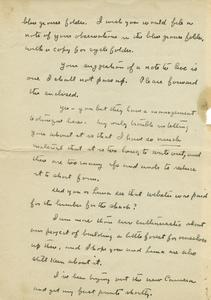 blue grouse folder. I wish you would file a
note of your observations in the blue grouse folder,
with a copy for cycle folder.
Your suggestion of a note to Lee is
one I shall not pass up. Please forward
the enclosed.
Yes - you bet they have a management
technique here. My only trouble in telling
you about it is that I have so much
material that it is too long to write out, and
there are too many ifs and ands to reduce
it to short form.
Did you or Luna see that Webster was paid
for the lumber for the shack?
I am more than ever enthusiastic about
our project of building a little forest for ourselves
up there, and I hope you and Luna are also
still keen about it.
I've been trying out the new Camera
and get my first prints shortly.